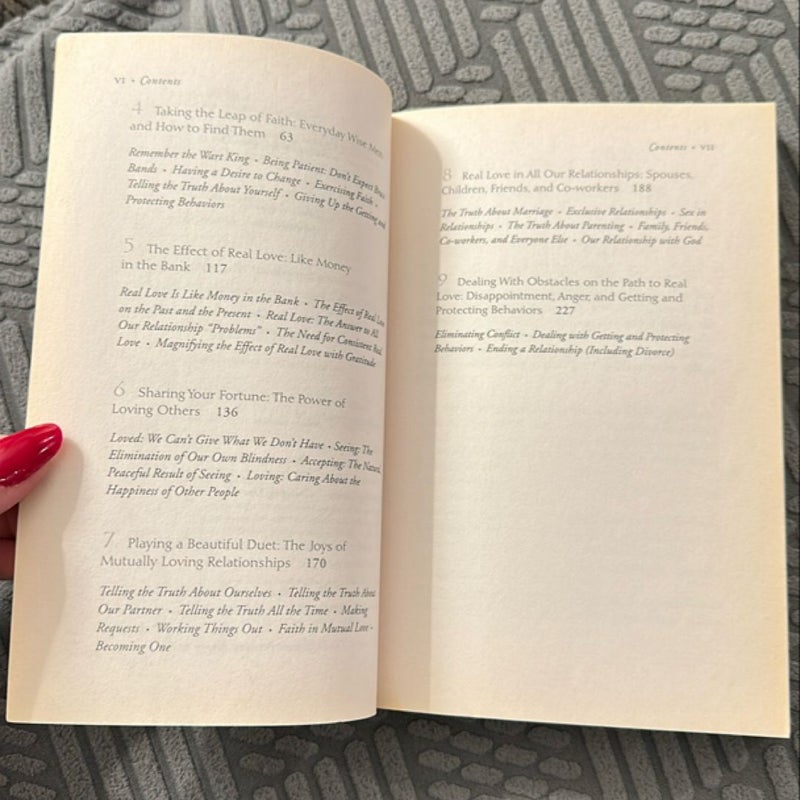 VI • Contents
4 Taking the Leap of Faith: Everyday Wise Men
and How to Find Them 63
Remember the Wart King • Being Patient: Don't Expect Brass
Bands • Having a Desire to Change • Exercising Faith •
Telling the Truth About Yourself • Giving Up the Getting and
Protecting Behaviors
5 The Effect of Real Love: Like Money
in the Bank 117
Real Love Is Like Money in the Bank • The Effect of Real Love
on the Past and the Present • Real Love: The Answer to All
Our Relationship "Problems" • The Need for Consistent Real
Love • Magnifying the Effect of Real Love with Gratitude
6 Sharing Your Fortune: The Power of
Loving Others 136
Loved: We Can't Give What We Don't Have • Seeing: The
Elimination of Our Own Blindness • Accepting: The Natural,
Peaceful Result of Seeing • Loving: Caring About the
Happiness of Other People
7 Playing a Beautiful Duet: The Joys of
Mutually Loving Relationships 170
Telling the Truth About Ourselves • Telling the Truth About
Our Partner • Telling the Truth All the Time • Making
Requests • Working Things Out • Faith in Mutual Love •
Becoming One
Contents • VII
8 Real Love in All Our Relationships: Spouses,
Children, Friends, and Co-workers 188
The Truth About Marriage • Exclusive Relationships • Sex in
Relationships • The Truth About Parenting • Family, Friends,
Co-workers, and Everyone Else • Our Relationship with God
9 Dealing With Obstacles on the Path to Real
Love: Disappointment, Anger, and Getting and
Protecting Behaviors 227
Eliminating Conflict • Dealing with Getting and Protecting
Behaviors • Ending a Relationship (Including Divorce)